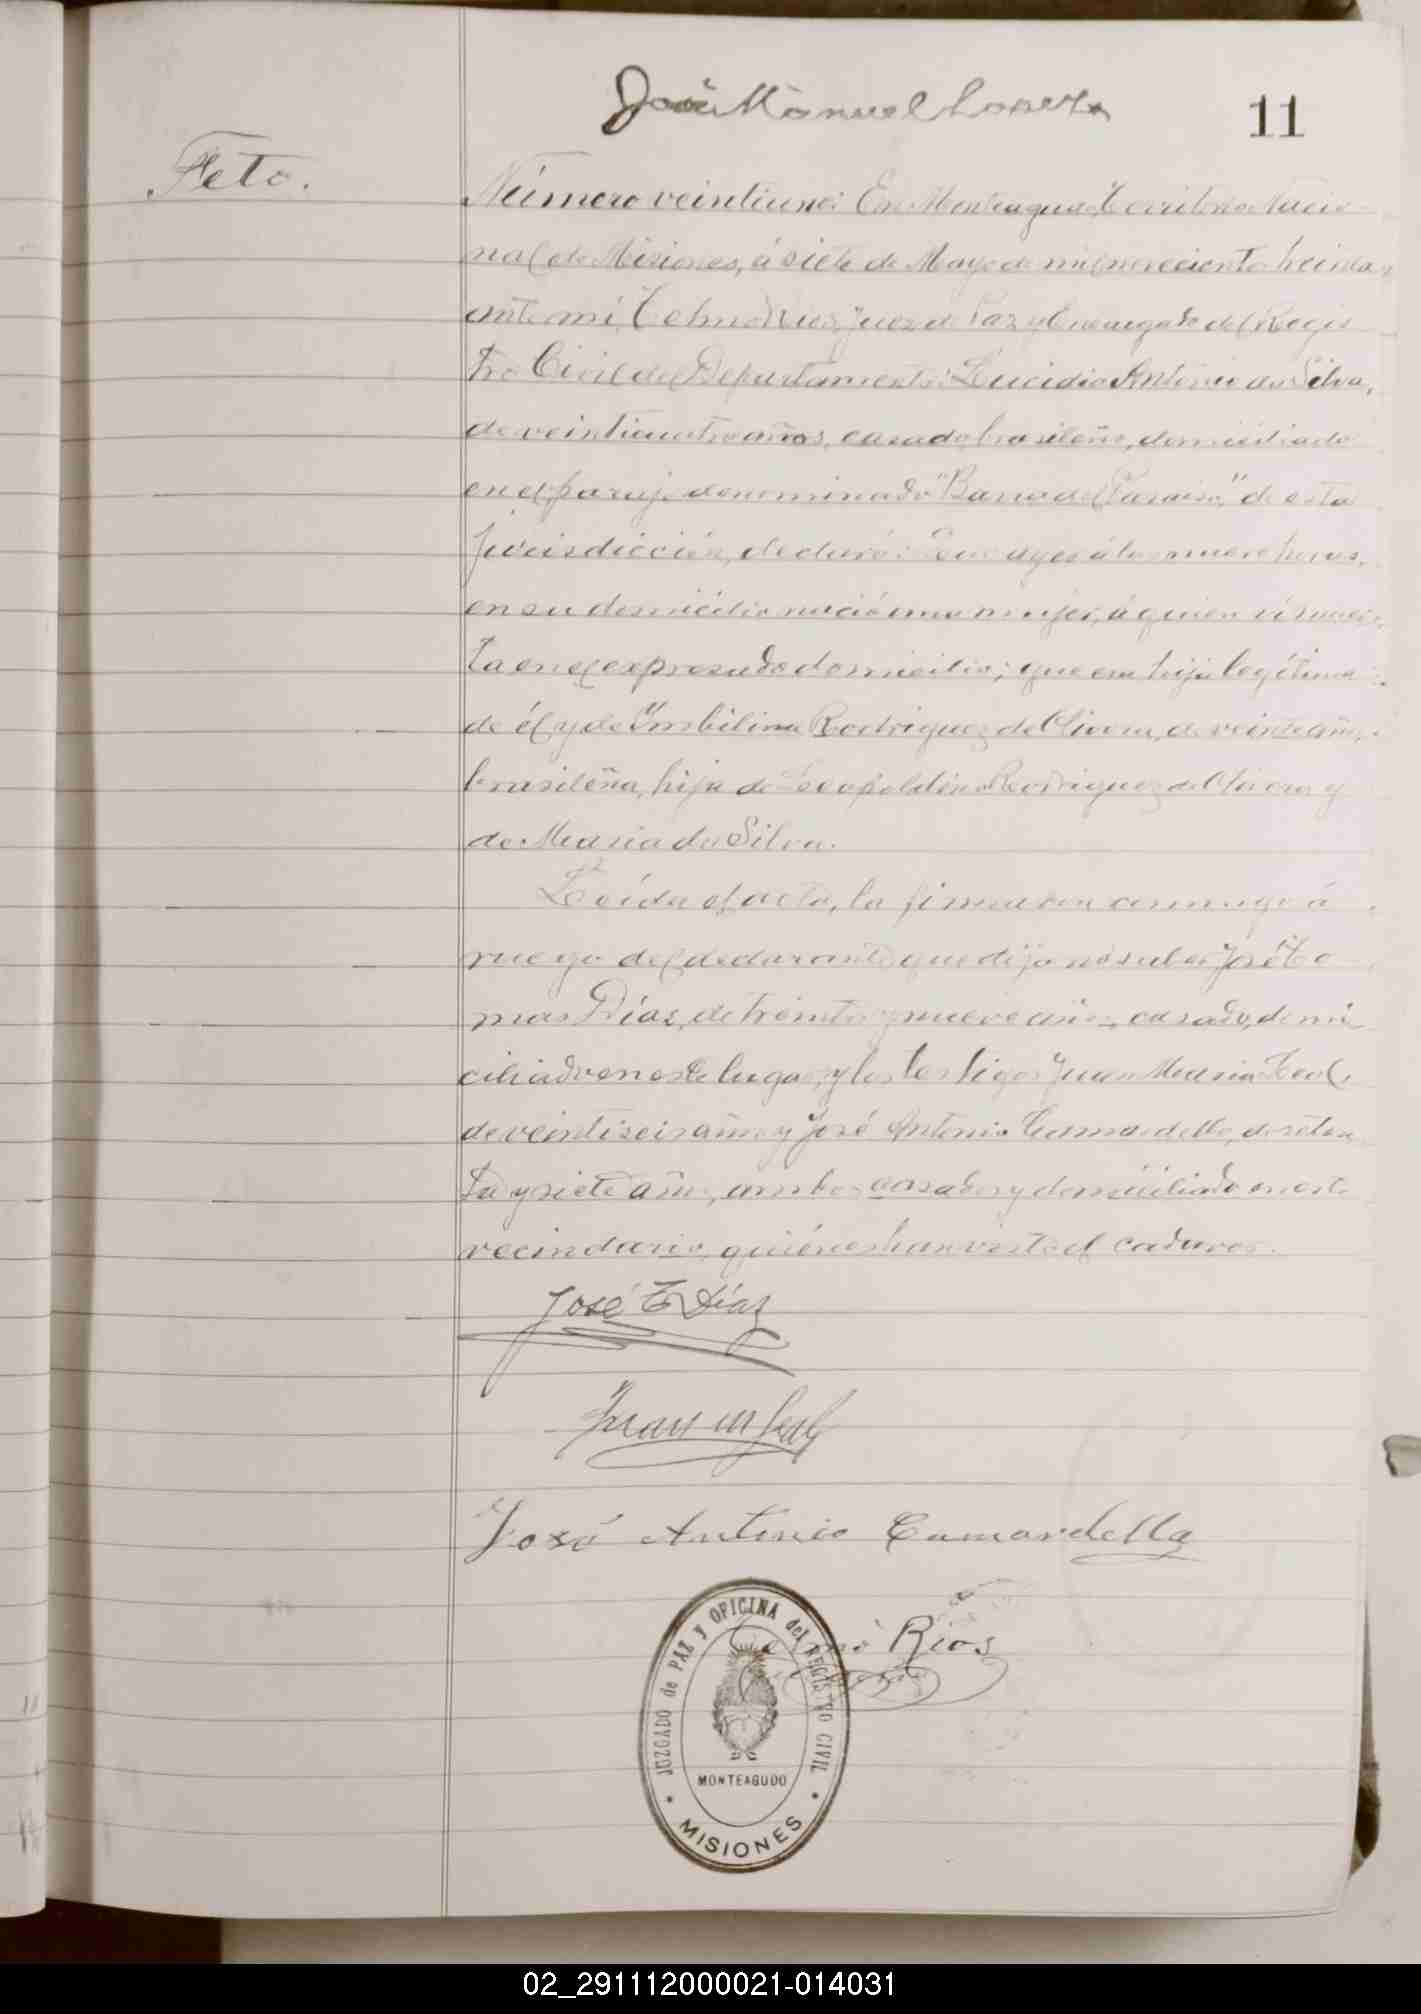 José Manuel Lopez
11
Feto.
Número veintiuno: En Monteagudo, Territorio Nacio-
nal de Misiones, á siete de Mayo de mil novecientos treinta,
ante mí, Telmo Rios, Juez de Paz y Encargado del Regis
tro Civil del Departamento: Lucidio Antonio da Silva,
de veinticuatro años, casado, brasileño, domiciliado
en el paraje denominado "Barra del Paraiso," de esta
jurisdicción, declaró: Que ayer á las nueve horas,
en su domicilio nació una mujer, á quien ví muer-
ta en el expresado domicilio; que era hija legítima
de él y de Umbilina Rodriguez de Olivera, de veinte años,
brasileña, hija de Leopoldino Rodriguez de Olivera y
de Maria da Silva.
Leída el acta, la firmaron conmigo á
ruego del declarante que dijo no saber José To
mas Díaz, de treinta y nueve años, casado, domi
ciliado en este lugar, y los testigos Juan Maria Leal,
de veintiseis años y José Antonio Camardella, de seten
ta y siete años, ambos casados y domiciliado en este
vecindario, quiénes han visto el cadaver.
José T Díaz
Juan M Leal
José Antonio Camardella
Telmo Rios
JUZGADO de PAZ y OFICINA del REGISTRO CIVIL
MONTEAGUDO
* MISIONES *
02_291112000021-014031